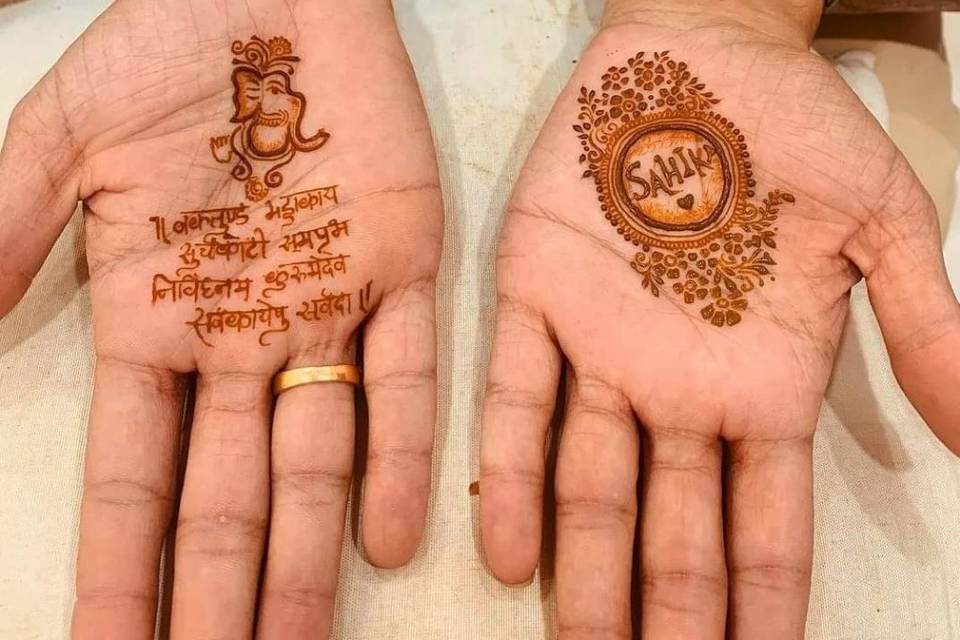 ॥ वक्रतुण्ड महाकाय
सुर्यकोटी समप्रभ
निर्विघ्नम कुरुमेदेव
सर्वकार्येषु सर्वदा ॥
SAHIKA